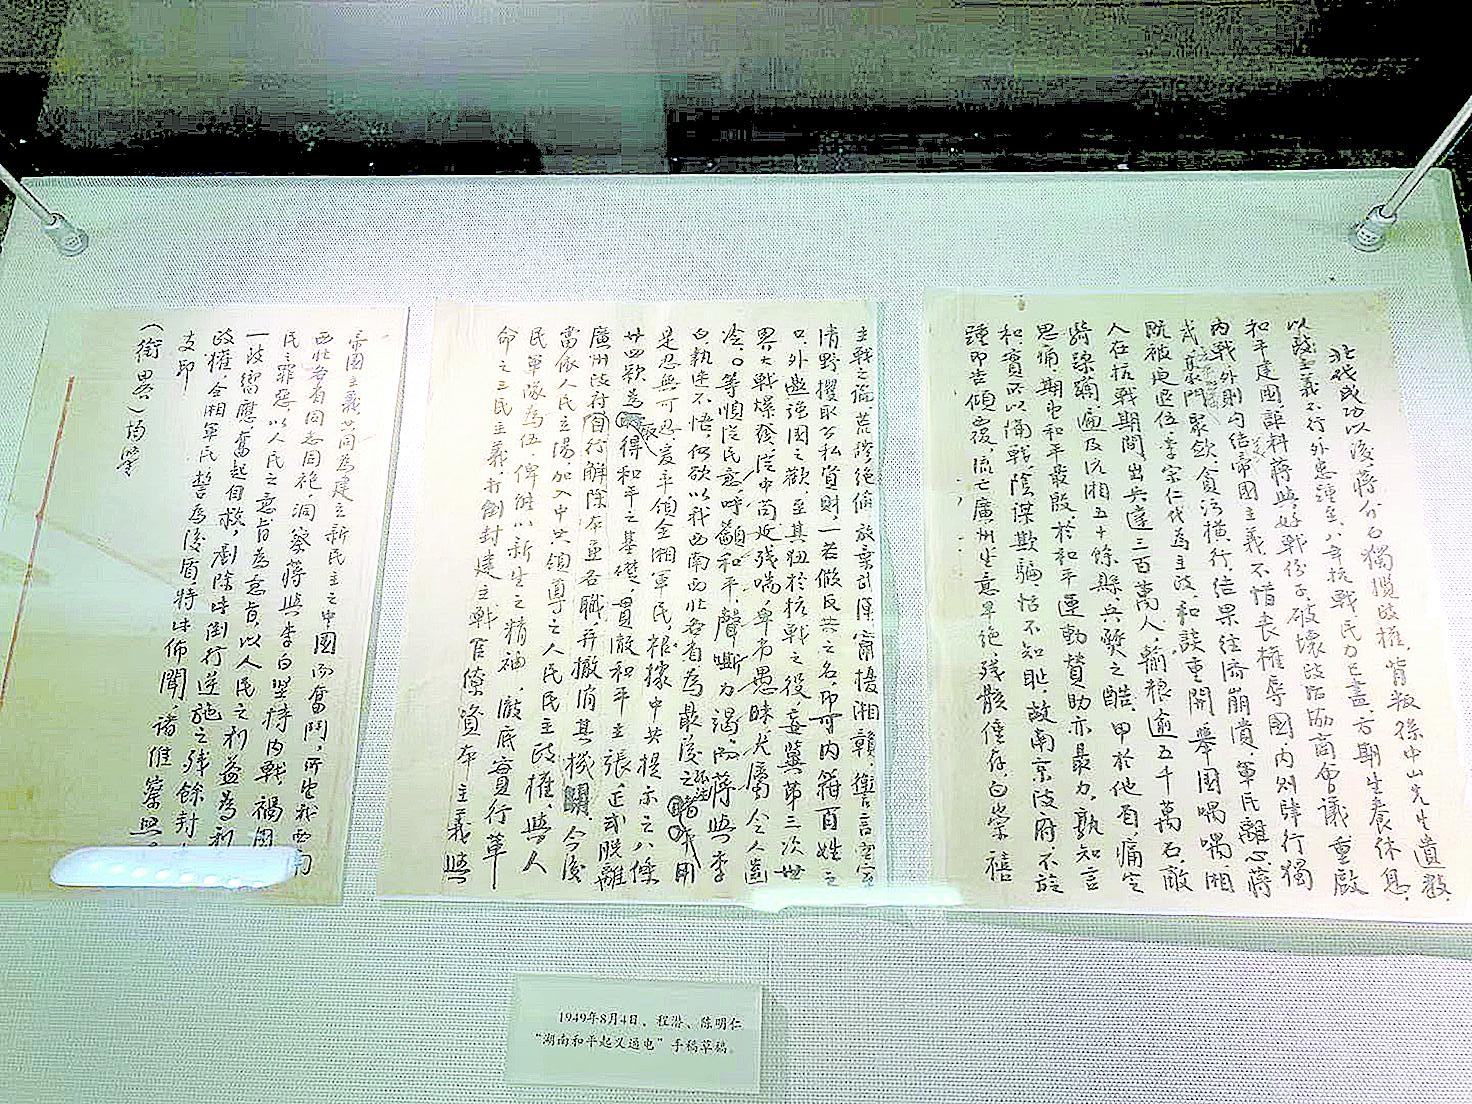 北伐成功以後，蔣介石獨攬政權，背叛孫中山先生遺教，
以致主義不行，外患踵至，八年抗戰，民力已盡，方期生養休息，
和平建國，詎料蔣與好戰份子，破壞政治協商會議，重啟
內戰，外則勾結帝國主義，不惜喪權辱國，內則肆行獨
裁，豪門聚斂，貪污橫行，結果經濟崩潰，軍民離心，蔣
既被迫退位，李宗仁代為主政，和談重開，舉國喁喁，湘
人在抗戰期間，出兵達三百萬人，輸糧逾五千萬石，敵
騎蹂躪遍及沅湘五十餘縣，兵燹之酷，甲於他省，痛定
思痛，期望和平最殷，於和平運動贊助亦最力，孰知言
和實所以備戰，陰謀欺騙，恬不知恥，故南京政府，不旋
踵即告傾覆，流亡廣州，生意早絕，殘骸僅存，白崇禧
主戰之論，荒謬絕倫，放棄武漢，竄擾湘贛，
清野攫取公私資財，一若假反共之名，即可內箝百姓之
口，外邀強國之歡，至其狃於抗戰之役，妄冀第三次世
界大戰爆發，從中苟延殘喘，卑劣愚昧，尤屬令人齒
冷。 等順從民意，呼籲和平，聲嘶力竭，而蔣與李
白執迷不悟，仍欲以我西南西北各省為最後之孤注
是忍無可忍，爰率領全湘軍民，根據中共提示之八條
廿四款，為取得和平之基礎，貫徹和平主張，正式脫離
廣州政府 自行解除在並各職，并撤消其機關 今後
當依人民立場，加入中共領導之人民民主政權，與人
民軍隊為伍，俾能以新生之精神，徹底實行革
命之三民主義，打倒封建主戰官僚資本主義與
帝國主義，共同為建立新民主之中國而奮鬥，所望我西南
西北各省同志同袍，洞察蔣與李白堅持內戰禍國
民之罪惡，以人民之意旨為意旨，以人民之利益為利
一致響應，奮起自救，剷除時倒行逆施之殘餘封
政權，全湘軍民，誓為後盾，特此佈聞，諸惟察照
支印
（銜畧）均鑒
1949年8月4日，程潜、陈明仁
“湖南和平起义通电”手稿草稿。